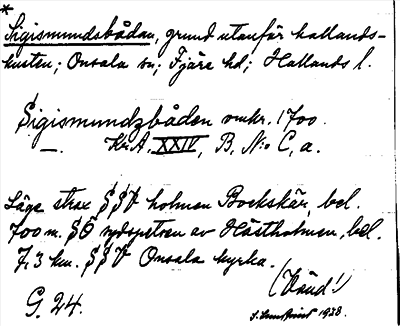 *
Sigismundsbådan, grund utanför hallands-
kusten; Onsala sn; Fjäre hd; Hallands l.
Sigismundzbåden omkr. 1700.
—. Kr.A. XXIV, B. N:o C, a.
Läge strax SSV holmen Bockskär, bel.
700 m. SÖ sydspetsen av Hästholmen, bel.
7,3 km. SSV Onsala kyrka.
(Vänd!)
G. 24.
1938